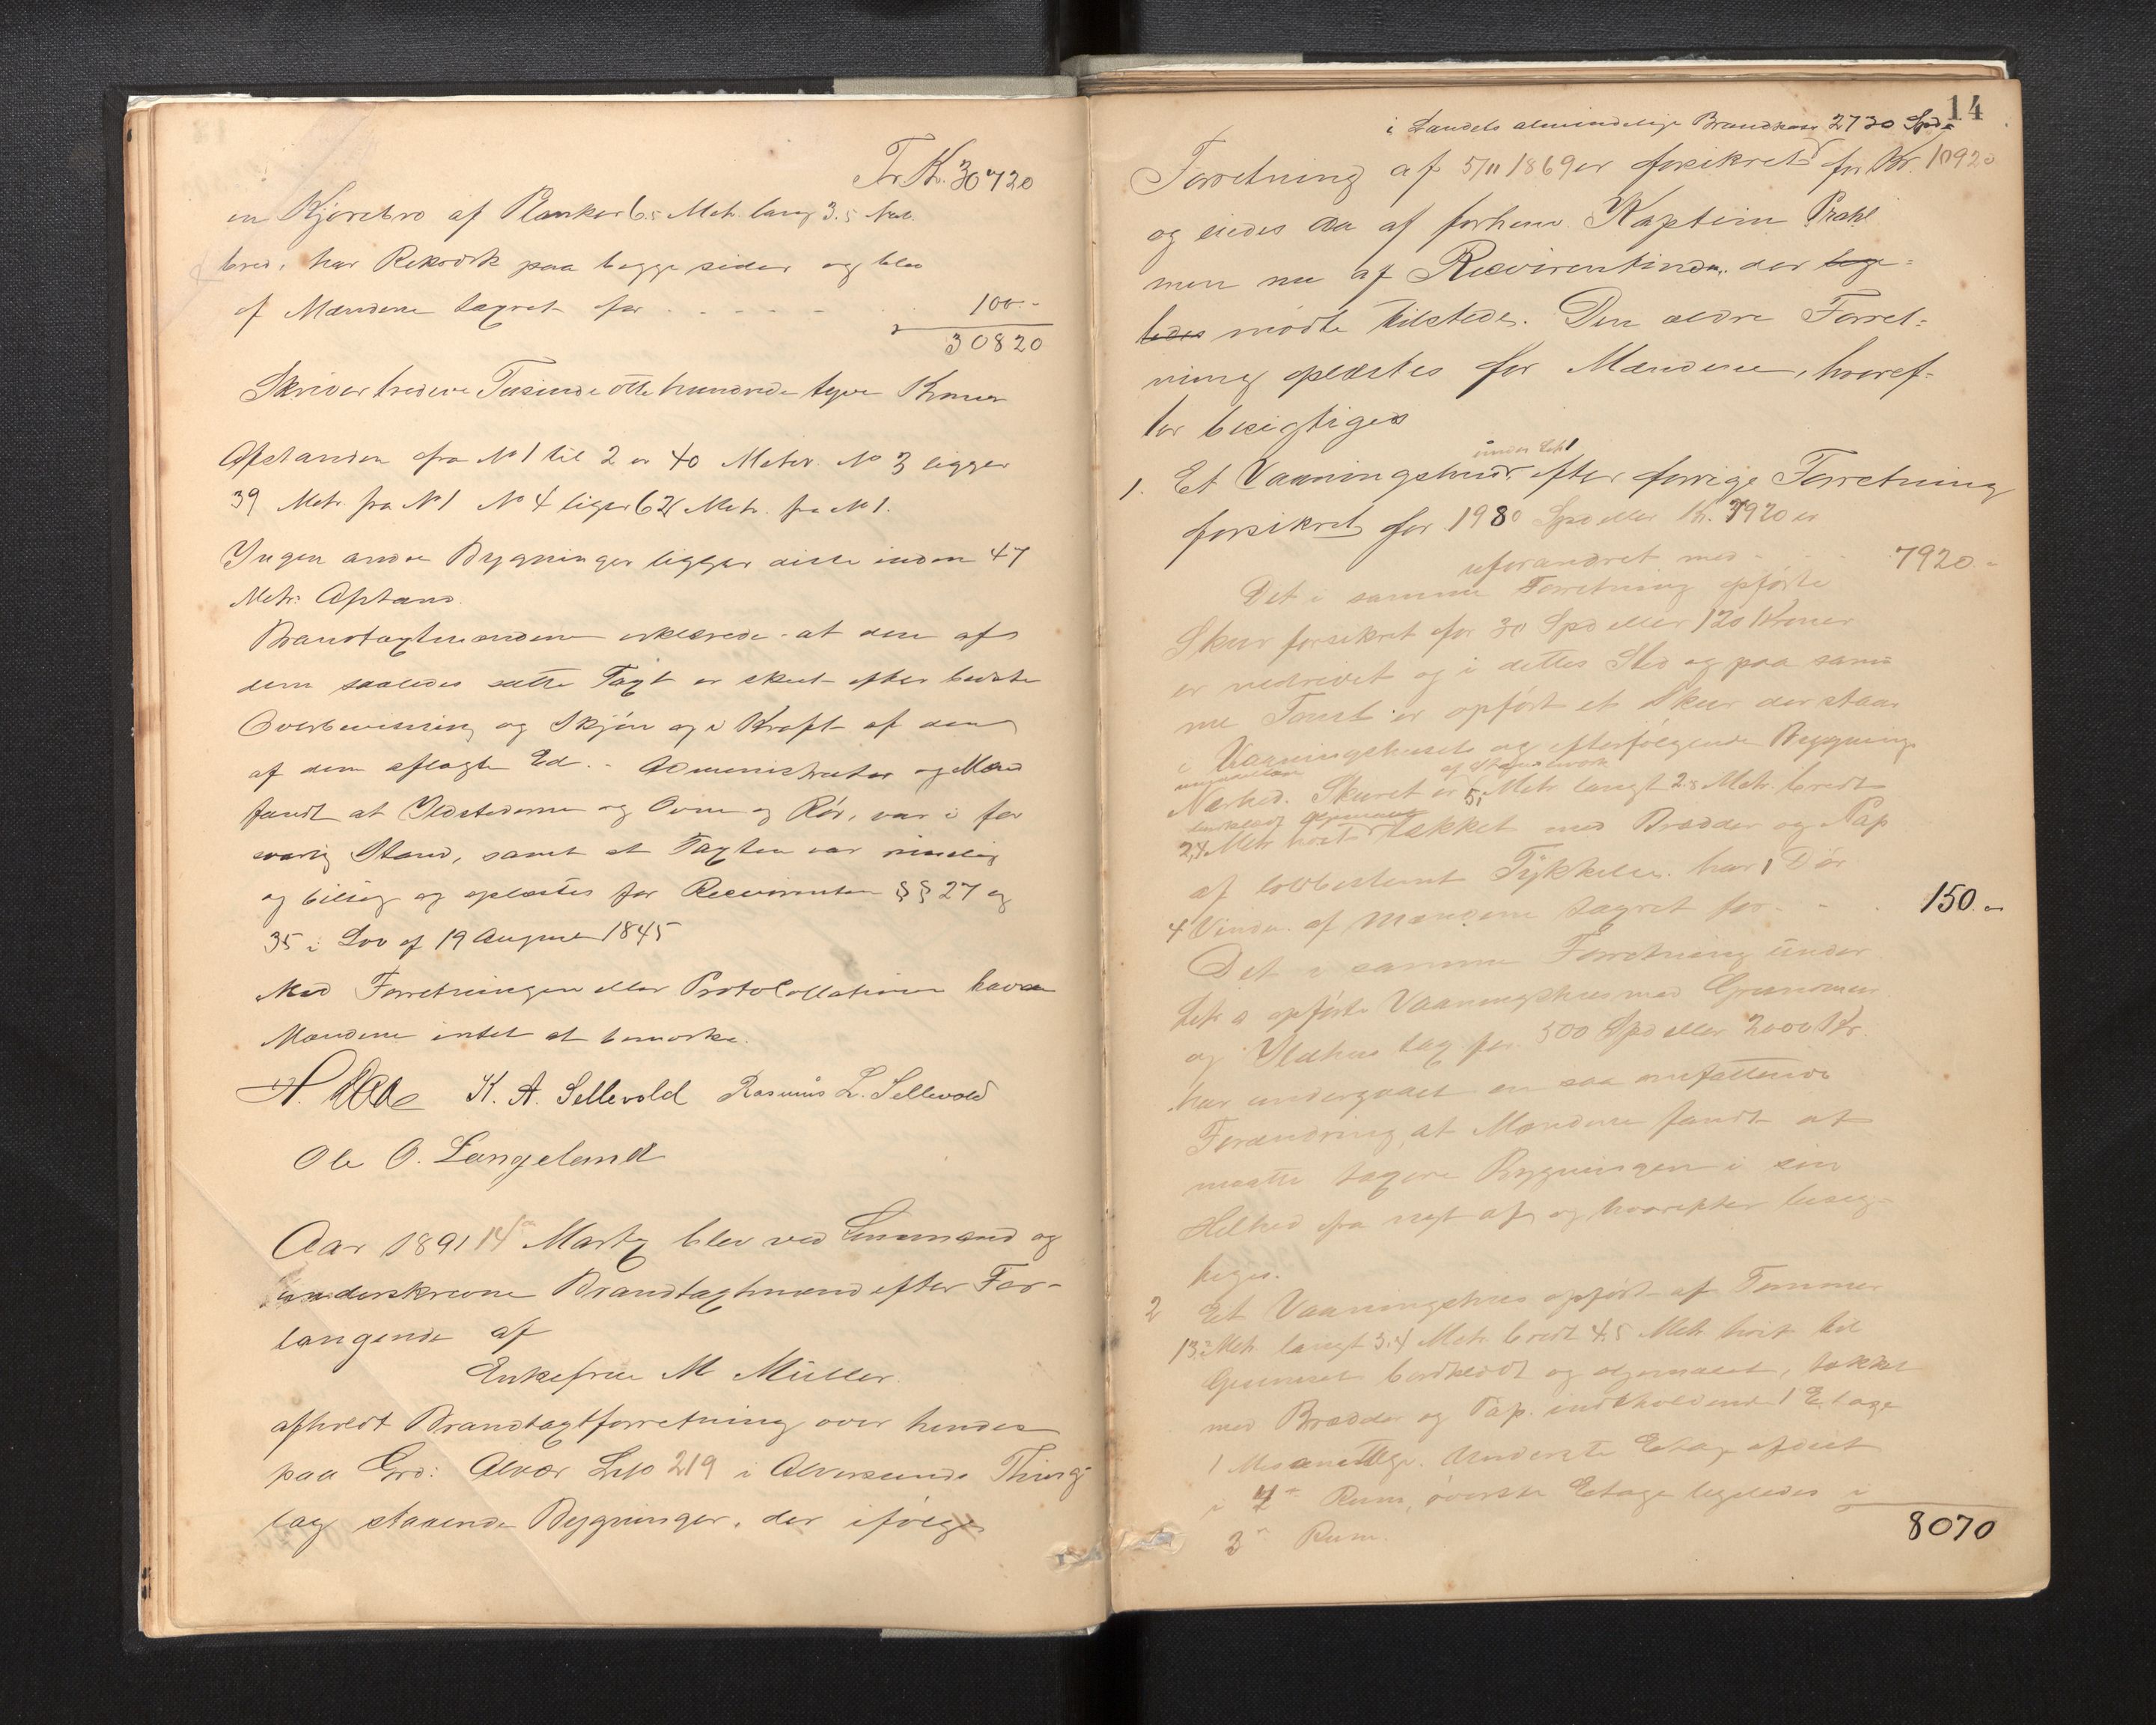 Tr. K. 30720
en Kjørebro af Planker 6.5 Metr. lang 3.5 Met.
bred, har Rekværk paa begge sider og blev
af Mændene taxeret for - - - - - 100.-
30820
Skriver tredive Tusinde otte hundrede tyve Kroner
Afstanden fra No 1 til 2 er 40 Meter. No 3 ligger
39 Metr. fra No 1 No 4 ligger 62 Metr. fra No 1.
Ingen andre Bygninger ligger disse inden 47
Metr: Afstand.
Brandtaxtmændene erklærede at den af
dem saaledes satte Taxt er skeet efter bedste
Overbevisning og Skjøn og i Kraft af den
af dem aflagte Ed. - Administrator og Mænd
fandt at Ildstederne og Ovne og Rør, var i for
svarlig Stand, samt at Taxten var rimelig
og billig og oplæstes for Reqvirenten §§ 27 og
35 i Lov af 19 August 1845
Mod Forretningen eller Protokollationen havde
Mændene intet at bemærke.
K. A. Sellevold Rasmus L. Sellevold
Ole O. Langeland
Aar 1891 14de Marts blev ved Lensmand og
underskrevne Brandtaxtmænd efter For-
langende af
Enkefrue M Müller.
afholdt Brandtaxtforretning over hendes
paa Grd: Alvær Lnr 219 i Alversunds Thing
lag staaende Bygninger, der ifølge
14
i Landets almindelige Brandkasse 2730 Spd=
Forretning af 5/11 1869 er forsikret for Kr. 10920
og eiedes da af forhen Kaptein Prahl
men nu af Reqvirentinden der lige=
ledes mødte tilstede. Den ældre Forret=
ning oplæstes for Mændene, hvoref=
ter besigtiges
under Litr 1
1. Et Vaaningshus efter forrige Forretning
forsikret for 1980 Spd eller Kr. 7920 er
uforandret med - - - 7920.-
Det i samme Forretning opførte
Skur forsikret for 30 Spd eller 120 Kroner
er nedrevet og i dettes Sted og paa sam=
me Tomt er opført et Skur der staar
i Vaaningshusets og efterfølgende Bygnings
umiddelbare af Stavværk
Nærhed. Skuret er 5.- Metr langt 2.8 Metr. bredt
bordklædt oljemalet
2,4 Metr høit tækket med Brædder og Pap
af lovbestemt Tykkelse. har 1 Dør
4 Vindu. af Mændene taxeret for - - - 150.-
Det i samme Forretning under
Litr a opførte Vaaningshus med Grundmur
og Ildhus tax. for 500 Spd eller 2000 Kr.
har undergaaet en saa omfattende
Forandring, at Mændene fandt at
maatte taxere Bygningen i sin
Helhed fra nyt af og hvorefter besig-
tiges.
2 Et Vaaningshus opført af Tømmer
13.2 Metr. langt 5.4 Metr bredt 4.5 Metr høit til
Gesimset bordklædt og oljemalet, tækket
med Brædder og Pap. indeholdende 1 Etage
1 Mesanetage. Underste Etage afdelt
i 4- Rum, øverste Etage ligeledes i
3- Rum.
8070